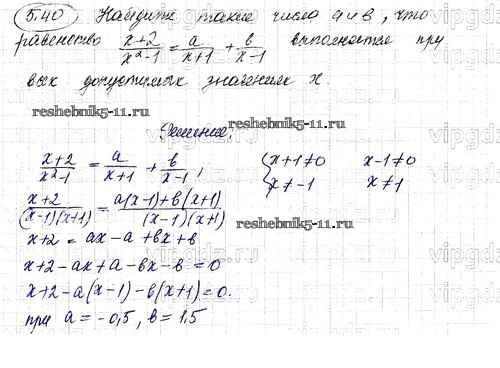 5.40 Найдите такие числа a и b, что
равенство (x+2)/(x²-1) = a/(x+1) + b/(x-1) выполняется при
всех допустимых значениях x.
reshebnik5-11.ru
reshebnik5-11.ru
Решение:
(x+2)/(x²-1) = a/(x+1) + b/(x-1), { x+1≠0 x-1≠0
x≠-1 x≠1
(x+2)/((x-1)(x+1)) = (a(x-1)+b(x+1))/((x-1)(x+1))
reshebnik5-11.ru
x+2 = ax-a+bx+b
x+2-ax+a-bx-b=0
x+2-a(x-1)-b(x+1)=0.
при a=-0,5, b=1,5